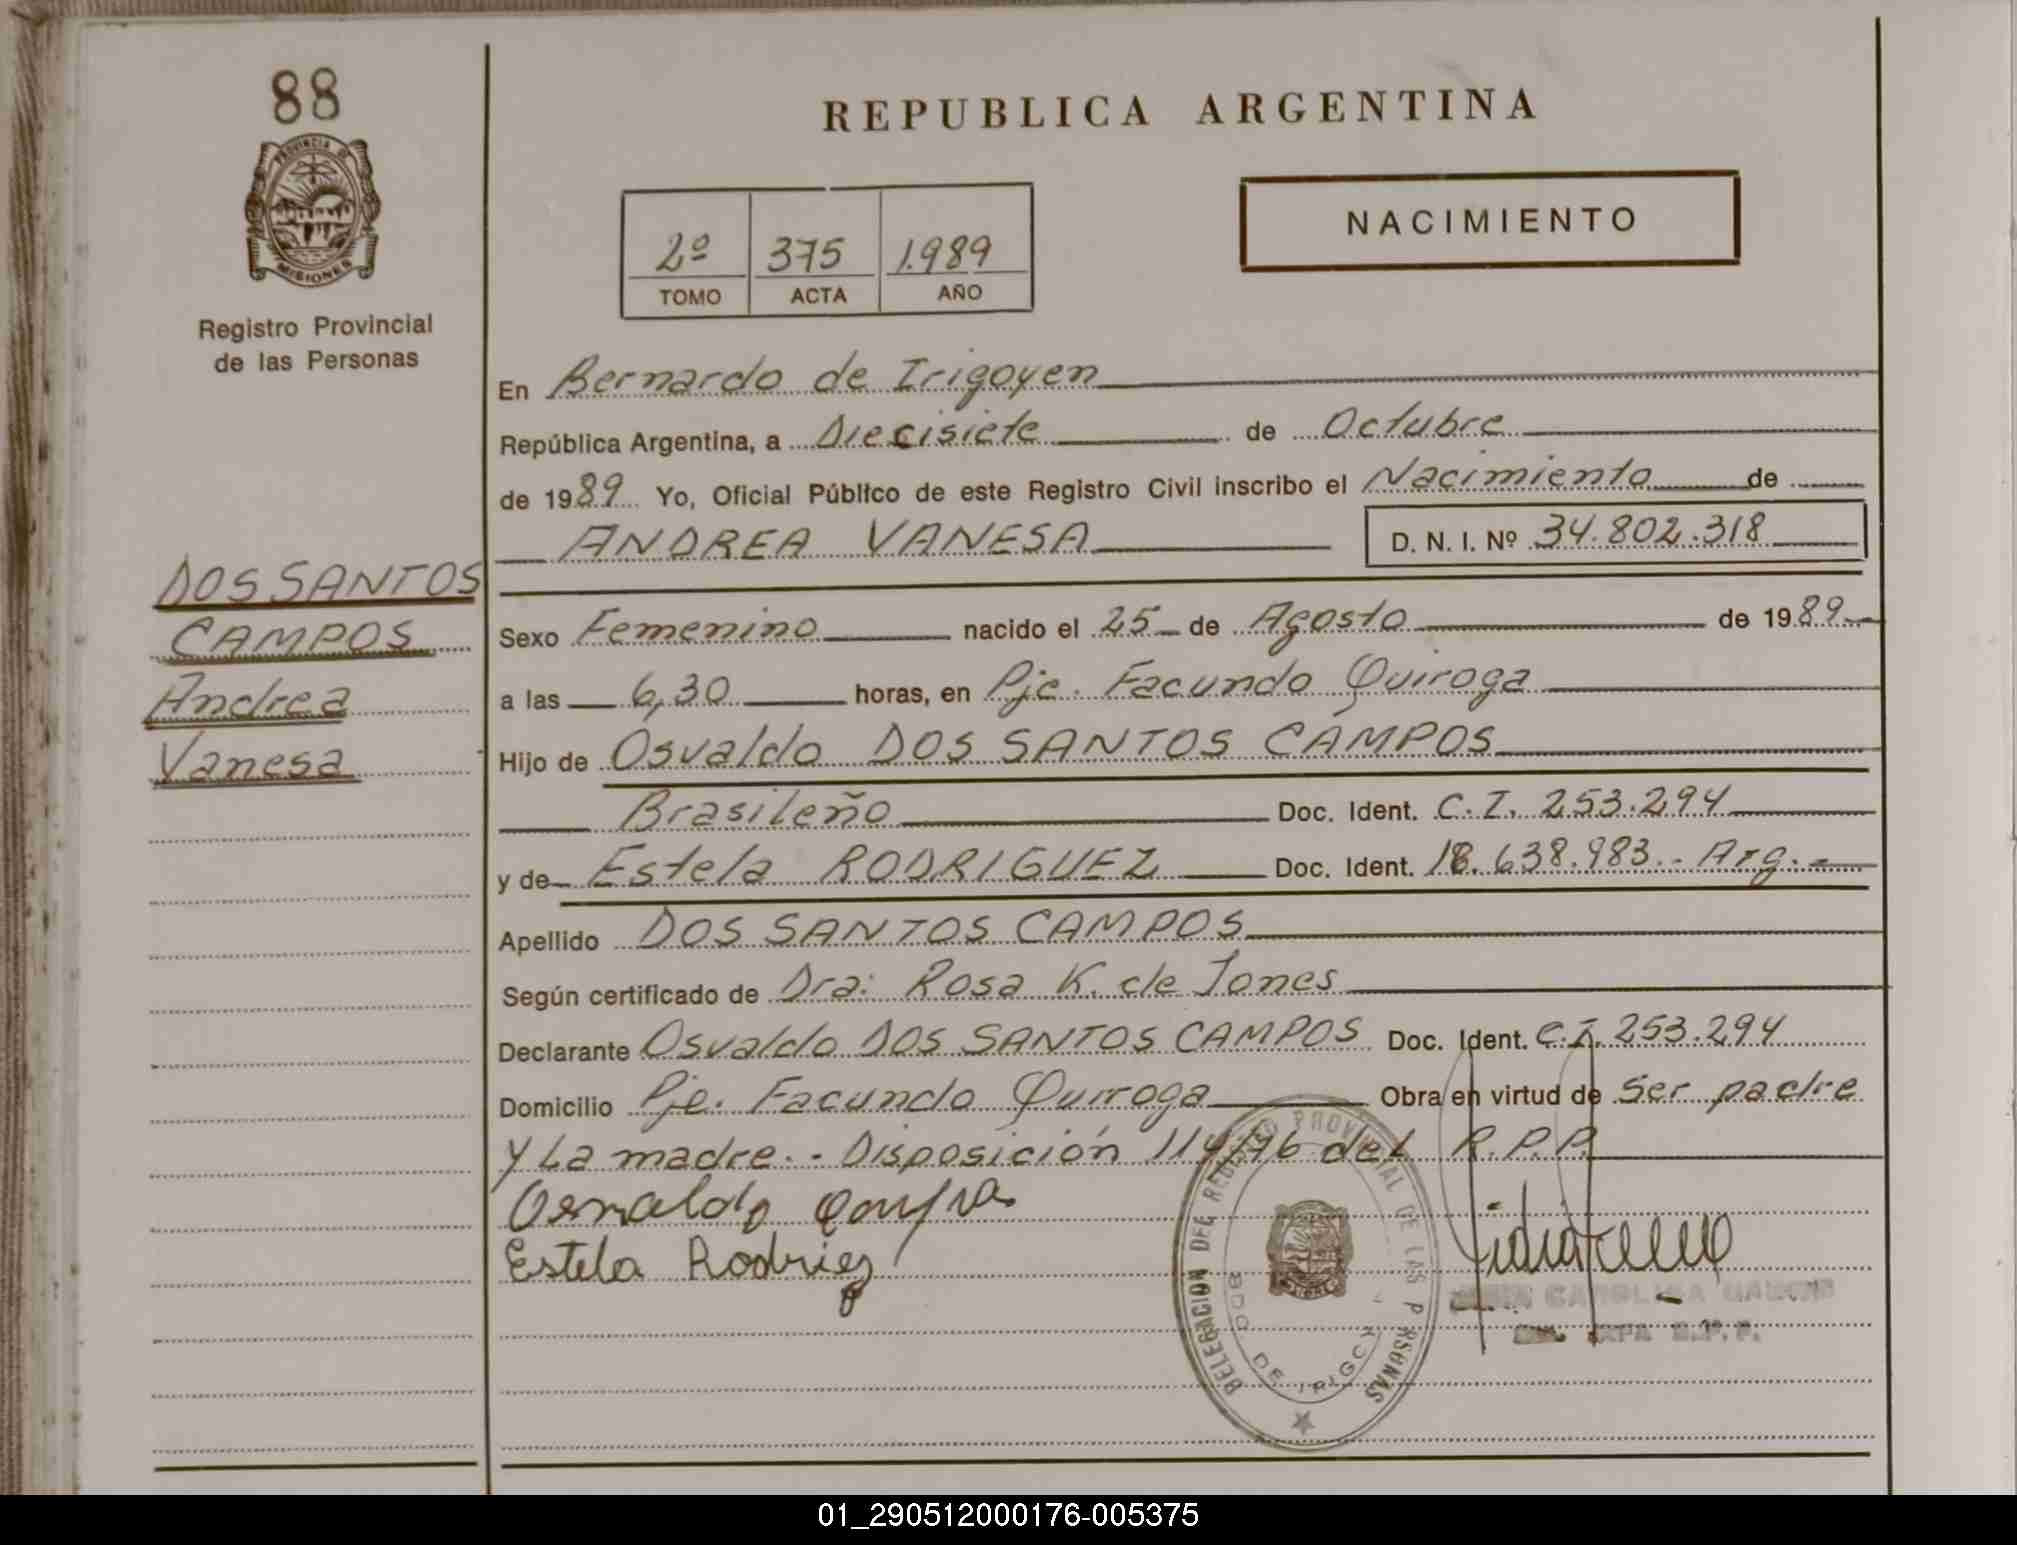 88
PROVINCIA DE
MISIONES
Registro Provincial
de las Personas
DOS SANTOS
CAMPOS
Andrea
Vanesa
REPUBLICA ARGENTINA
2º 375 1.989
TOMO ACTA AÑO
NACIMIENTO
En Bernardo de Irigoyen
República Argentina, a Diecisiete de Octubre
de 1989 Yo, Oficial Público de este Registro Civil inscribo el Nacimiento de
ANDREA VANESA D. N. I. Nº 34.802.318
Sexo Femenino nacido el 25 de Agosto de 1989
a las 6,30 horas, en Pje. Facundo Quiroga
Hijo de Osvaldo DOS SANTOS CAMPOS
Brasileño Doc. Ident. C.I. 253.294
y de Estela RODRIGUEZ Doc. Ident. 18.638.983.- Arg.-
Apellido DOS SANTOS CAMPOS
Según certificado de Dra: Rosa K. de Jones
Declarante Osvaldo DOS SANTOS CAMPOS Doc. Ident. C.I. 253.294
Domicilio Pje. Facundo Quiroga Obra en virtud de Ser padre
y La madre.- Disposición 114/76 del R.P.P.
Estela Rodriez
DELEGACION DEL REGISTRO PROVINCIAL DE LAS PERSONAS
BDO DE IRIGOY
CAROLINA
01_290512000176-005375